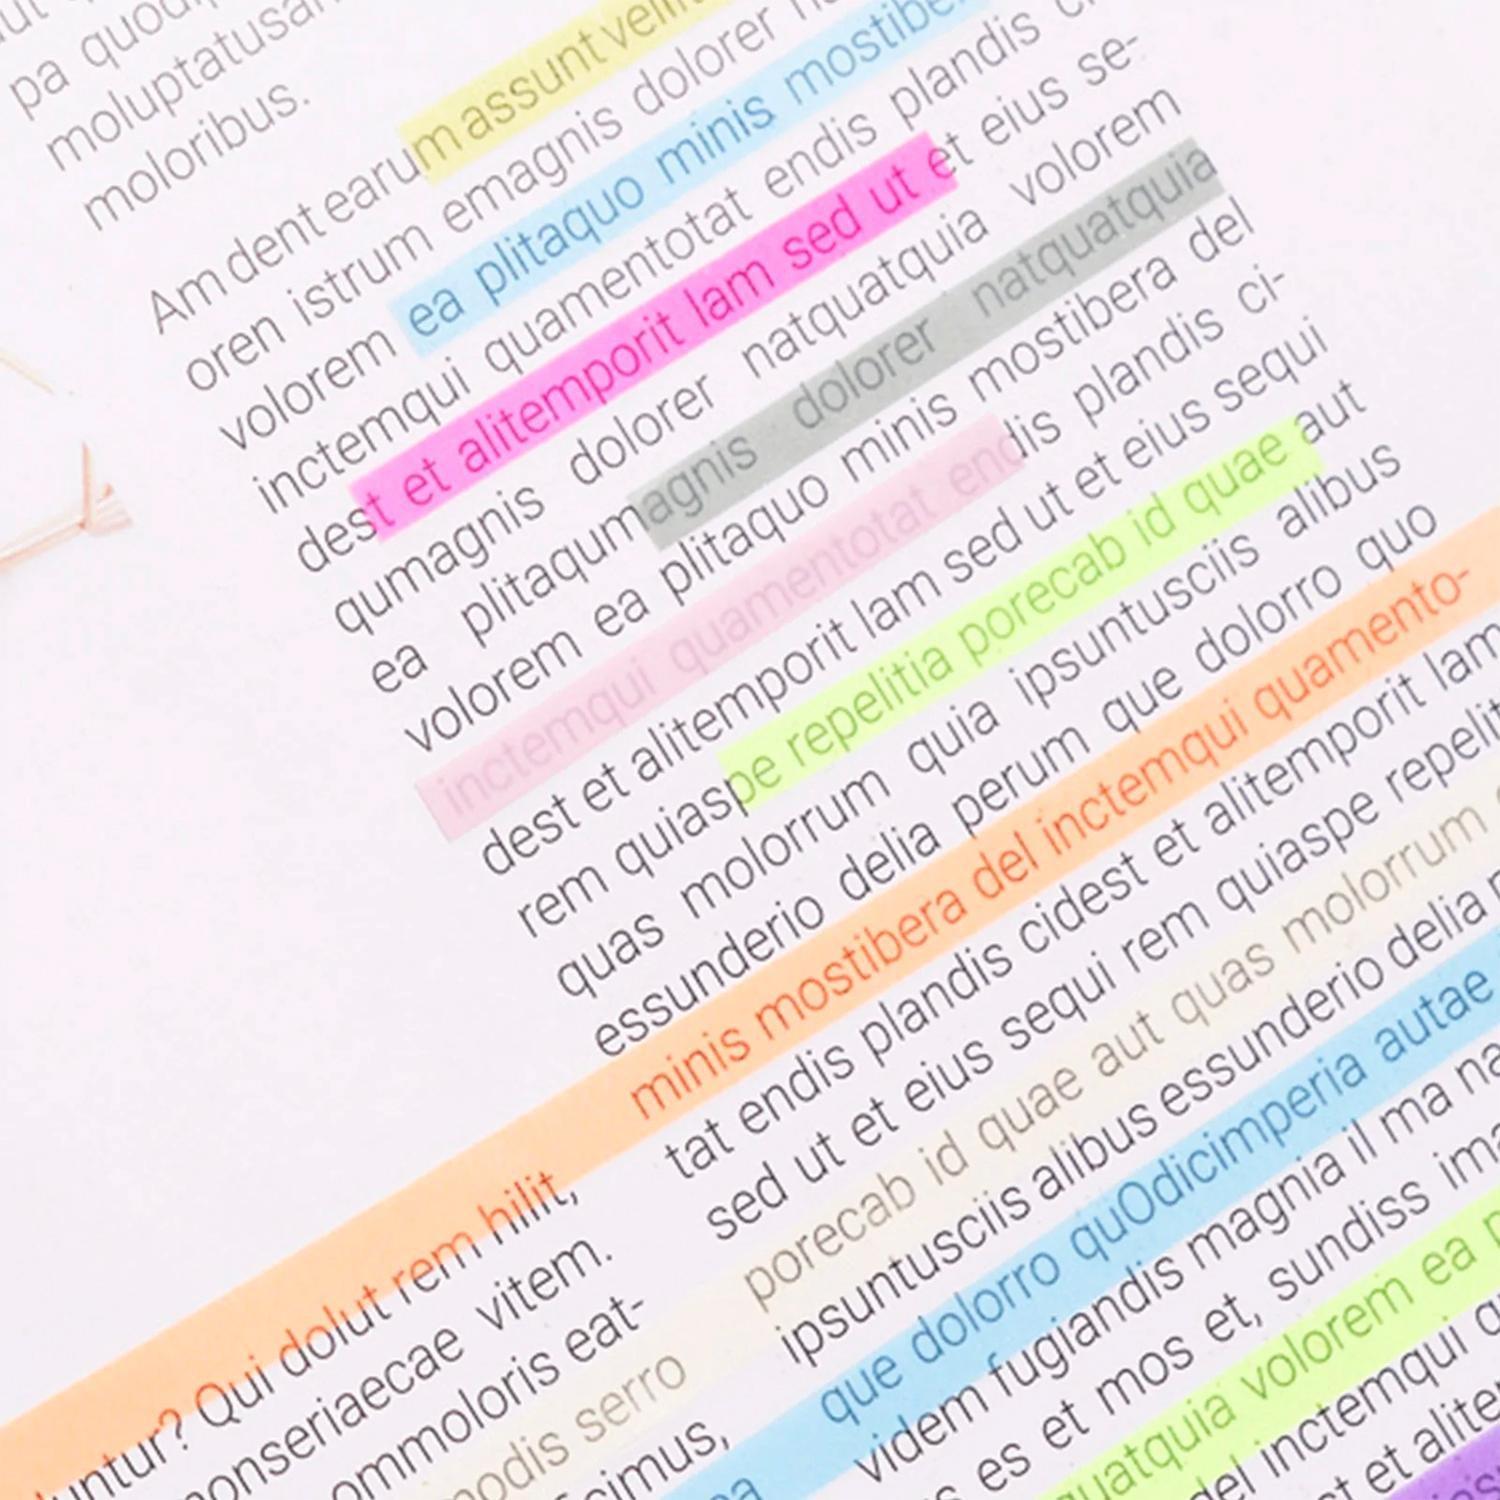 moluptatusan
moloribus.
Am dent earum assunt
oren istrum emagnis dolorer
volorem ea plitaquo minis
inctemqui quamentotat endis plandis
dest et alitemporit lam sed ut et eius se-
qumagnis dolorer natquatquia volorem
ea plitaqumagnis dolorer natquatquia
volorem ea plitaquo minis mostibera del
inctemqui quamentotat endis plandis ci-
dest et alitemporit lam sed ut et eius sequi
rem quiaspe repelitia porecab id quae aut
quas molorrum quia ipsuntusciis alibus
essunderio delia perum que dolorro quo
minis mostibera del inctemqui quamento-
tat endis plandis cidest et alitemporit lam
sed ut et eius sequi rem quiaspe
porecab id quae aut quas molorrum
ipsuntusciis alibus essunderio delia
que dolorro quOdicimperia autae
videm fugiandis magnia il ma
es et mos et, sundiss
volorem ea
del inctemqui
et
Qui dolut rem hilit,
vitem.
eat-
serro